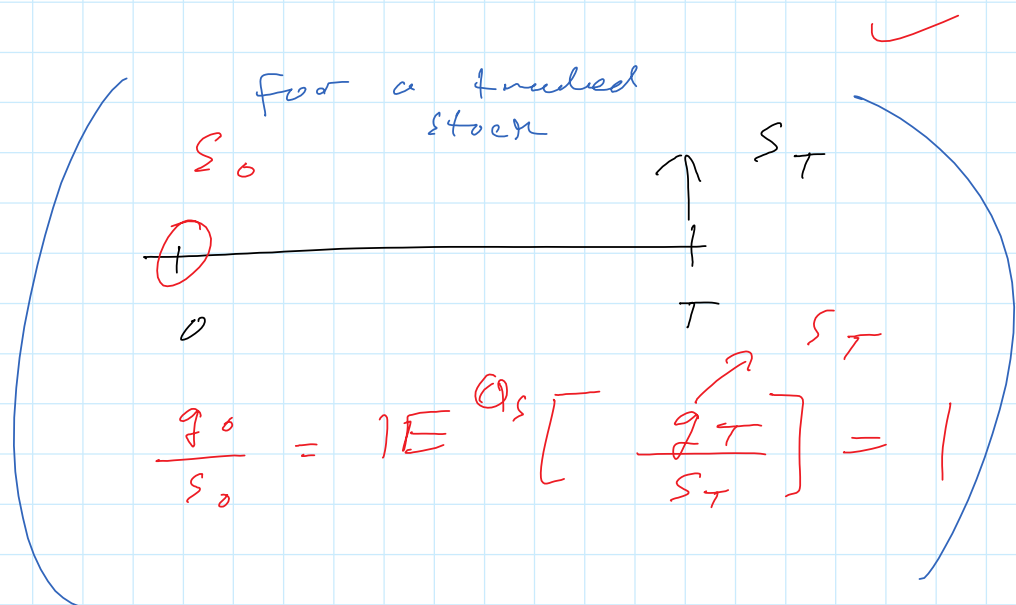 For a traded
stock
S_0
S_T
0
T
S_T
g_0 / S_0 = 𝔼^{Q_S} [ g_T / S_T ] = 1